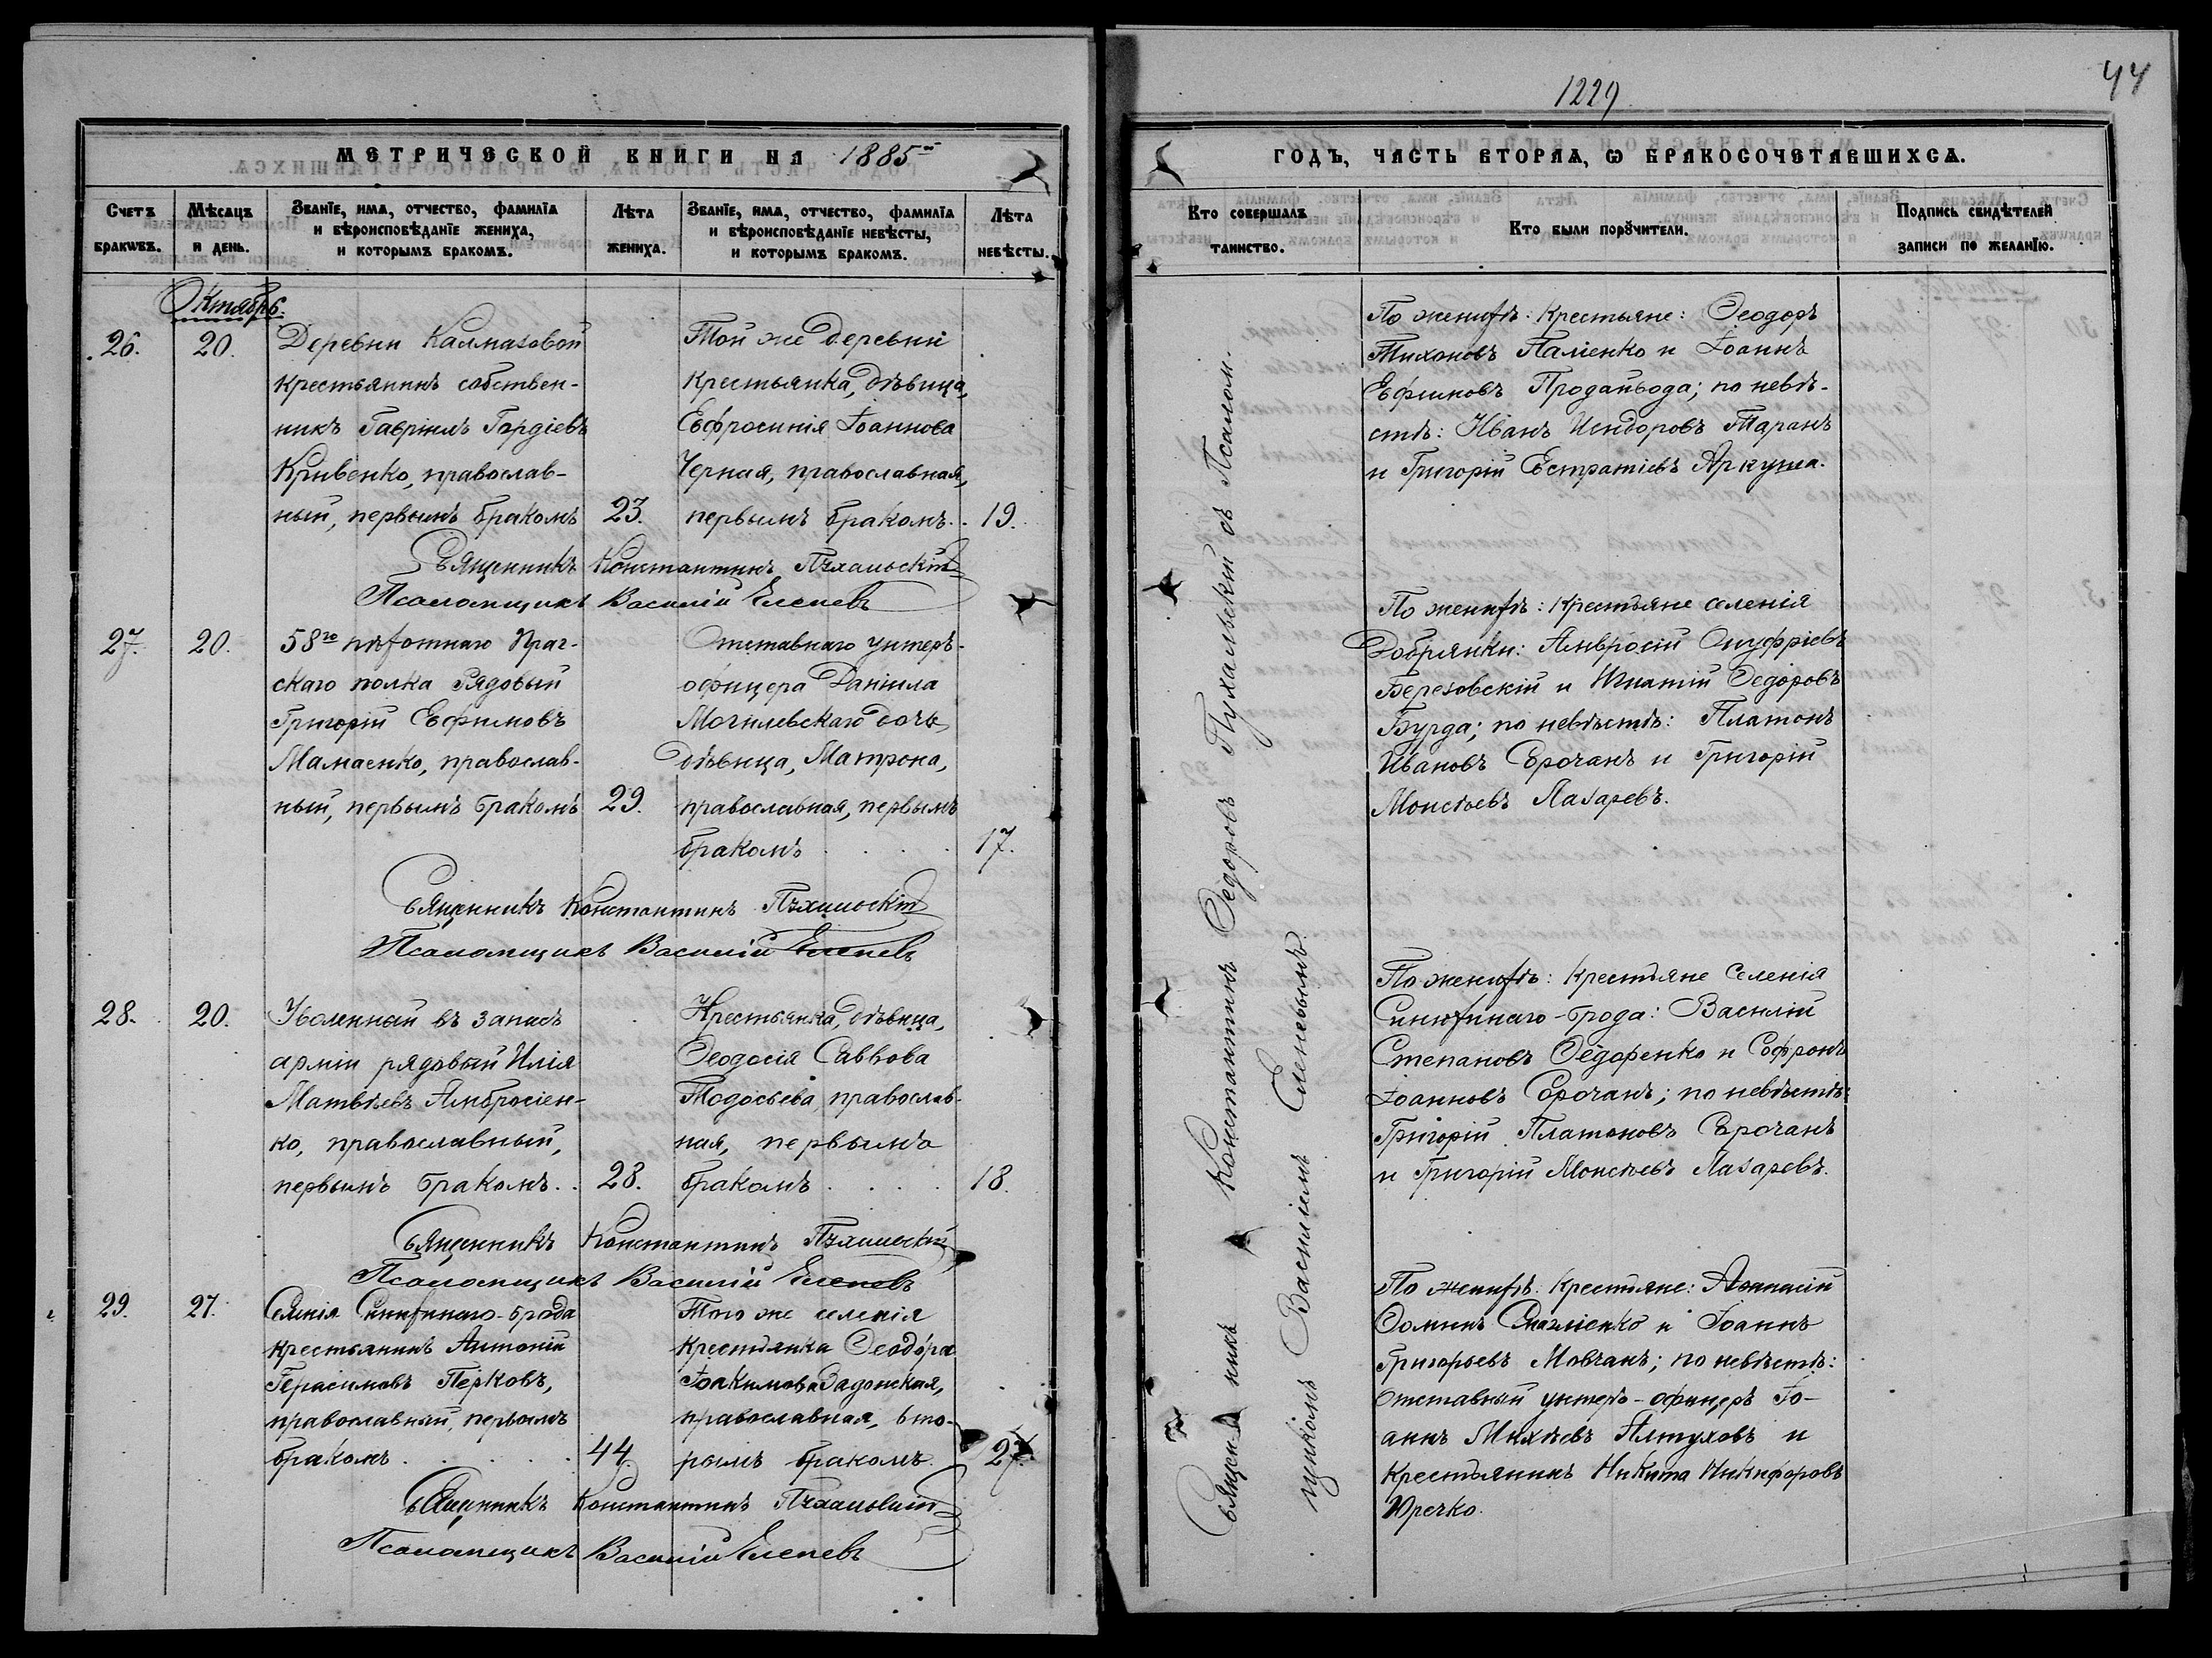 МЕТРИЧЕСКОЙ КНИГИ НА 1885й
Счетъ браковъ.
Мѣсяцъ и день.
Званіе, имя, отчество, фамилія и вѣроисповѣданіе жениха, и которымъ бракомъ.
Лѣта жениха.
Званіе, имя, отчество, фамилія и вѣроисповѣданіе невѣсты, и которымъ бракомъ.
Лѣта невѣсты.
Октябрь.
26. 20.
Деревни Калмазовой
крестьянинъ собствен-
никъ Гавріилъ Гордіевъ
Кривенко, православ-
ный, первымъ бракомъ
23.
Той же деревни
крестьянка, дѣвица,
Евфросинія Іоаннова
Черная, православная,
первымъ бракомъ.
19.
Священникъ Константинъ Пухальскій
Псаломщикъ Василій Еленевъ
27. 20.
58го пѣхотнаго Праг-
скаго полка Рядовый
Григорій Евфимовъ
Мамаенко, православ-
ный, первымъ бракомъ
29.
Отставнаго унтеръ-
офицера Даніила
Могилевскаго дочь
дѣвица, Матрона,
православная, первымъ
бракомъ
17.
Священникъ Константинъ Пухальскій
Псаломщикъ Василій Еленевъ
28. 20.
Уволенный въ запасъ
арміи рядовый Илія
Матвѣевъ Амбросіен-
ко, православный,
первымъ бракомъ..
28.
Крестьянка, дѣвица,
Ѳеодосія Саввова
Тодосьева, православ-
ная, первымъ
бракомъ
18.
Священникъ Константинъ Пухальскій
Псаломщикъ Василій Еленевъ
29. 27.
Селенія Синюхинаго-брода
крестьянинъ Антоній
Герасимовъ Перковъ,
православный, первымъ
бракомъ
44
Того же селенія
крестьянка Ѳеодора
Іоакимова Задонская,
православная, вто-
рымъ бракомъ.
27.
Священникъ Константинъ Пухальскій
Псаломщикъ Василій Еленевъ
1229
44
ГОДЪ, ЧАСТЬ ВТОРАЯ, Ѡ БРАКОСОЧЕТАВШИХСЯ.
Кто совершалъ таинство.
Кто были поручители.
Подпись свидѣтелей записи по желанію.
Священникъ Константинъ Ѳедоровъ Пухальскій съ Псалом-
щикомъ Василіемъ Еленевымъ.
По женихѣ: Крестьяне: Ѳеодоръ
Тихоновъ Паліенко и Іоаннъ
Евфимовъ Продайвода; по невѣ-
стѣ: Иванъ Исидоровъ Таранъ
и Григорій Евстратіевъ Аркуша.
По женихѣ: Крестьяне селенія
Добрянки: Амвросій Онуфріевъ
Березовскій и Игнатій Ѳедоровъ
Бурда; по невѣстѣ: Платонъ
Ивановъ Сорочанъ и Григорій
Моисѣевъ Лазаревъ.
По женихѣ: Крестьяне Селенія
Синюхинаго-брода: Василій
Степановъ Ѳедоренко и Софронъ
Іоанновъ Сорочанъ; по невѣстѣ:
Григорій Платоновъ Сорочанъ
и Григорій Моисѣевъ Лазаревъ.
По женихѣ: Крестьяне: Аѳанасій
Ѳоминъ и Іоаннъ
Григорьевъ Мовчанъ; по невѣстѣ:
Отставный унтеръ-офицеръ Іо-
аннъ Михѣевъ Алтуховъ и
Крестьянинъ Никита Никифоровъ
Юречко.